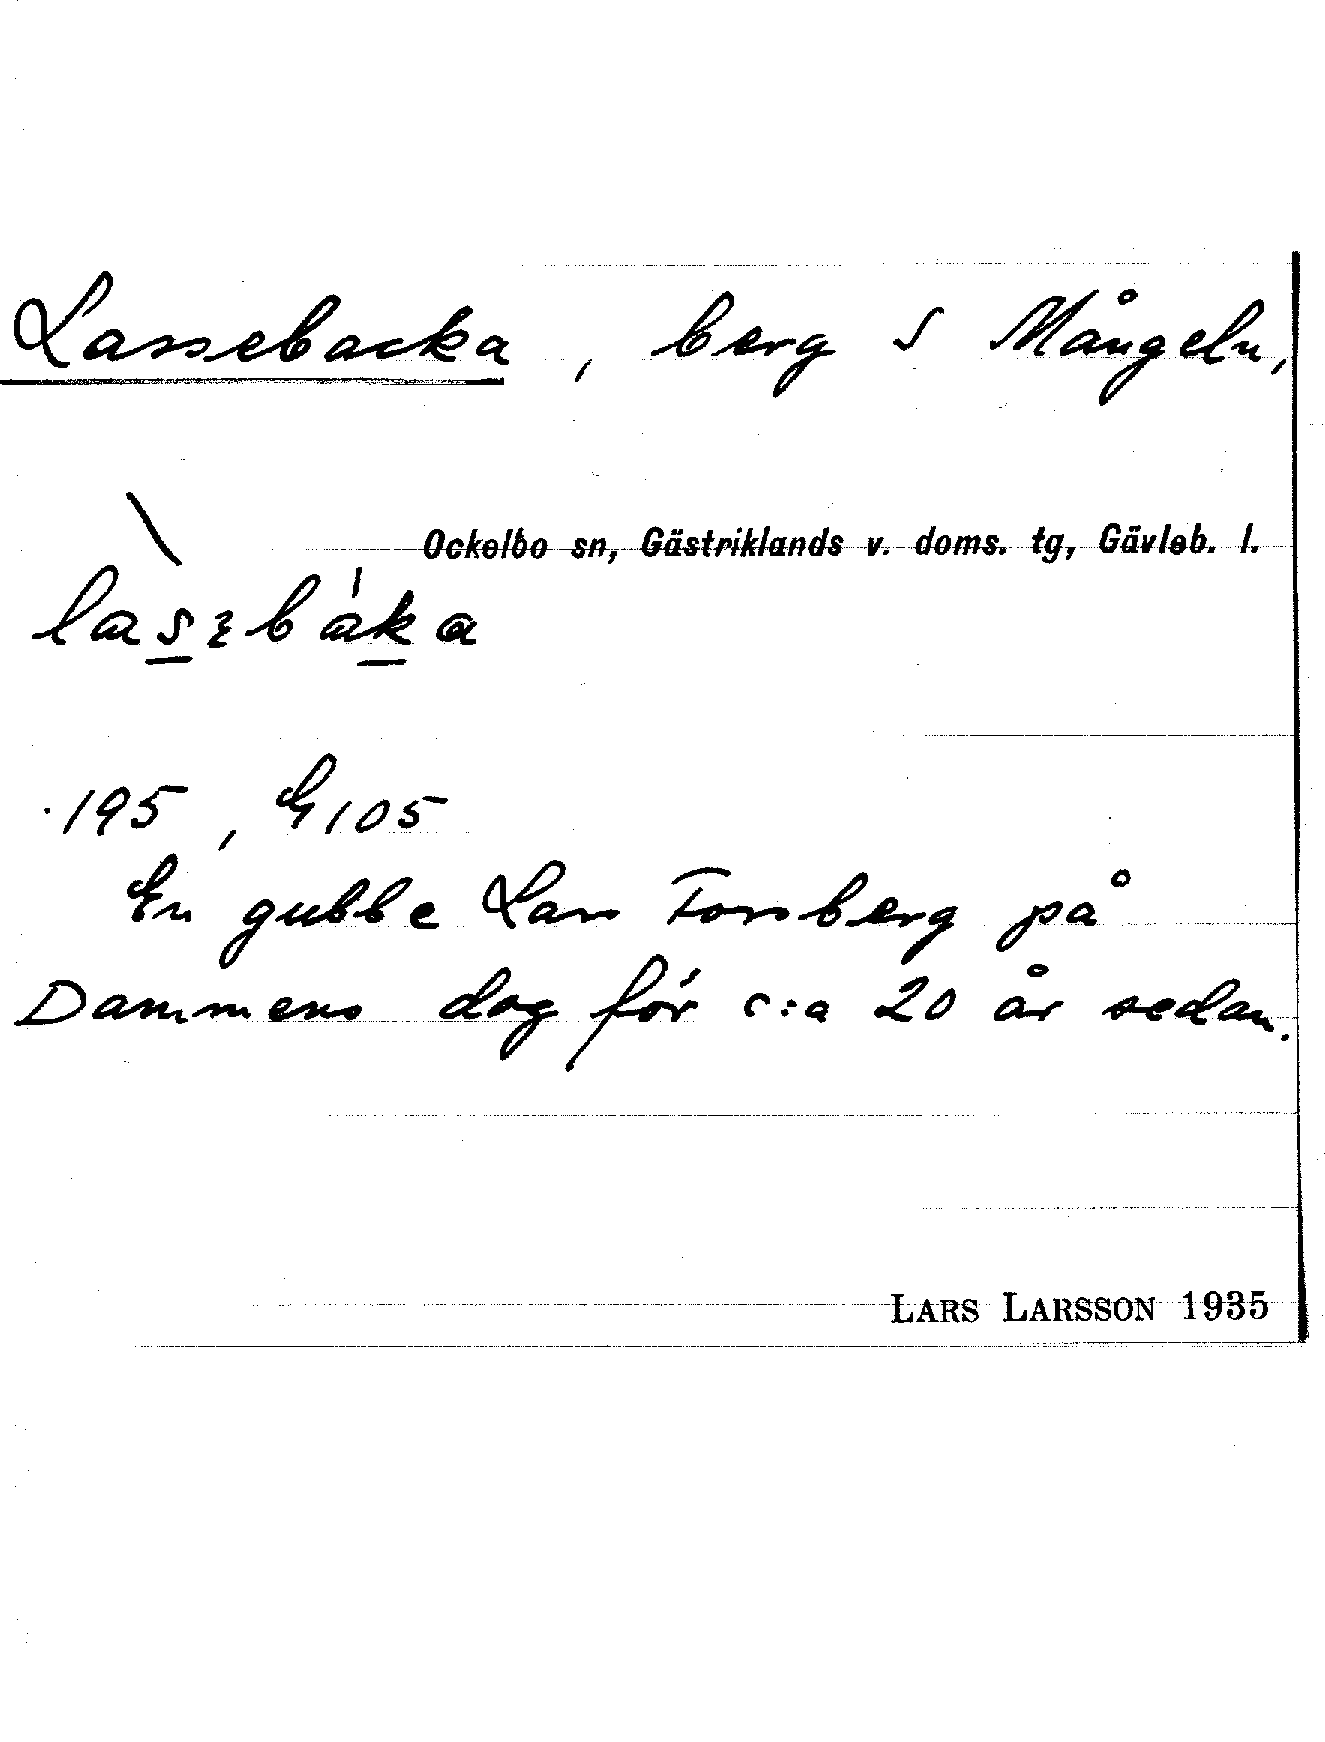 Lassebacka, berg S Mångeln,
Ockelbo sn, Gästriklands v. doms. tg, Gävleb. l.
195, G105
En gubbe Lars Forsberg på
Dammens dog för c:a 20 år sedan.
LARS LARSSON 1935